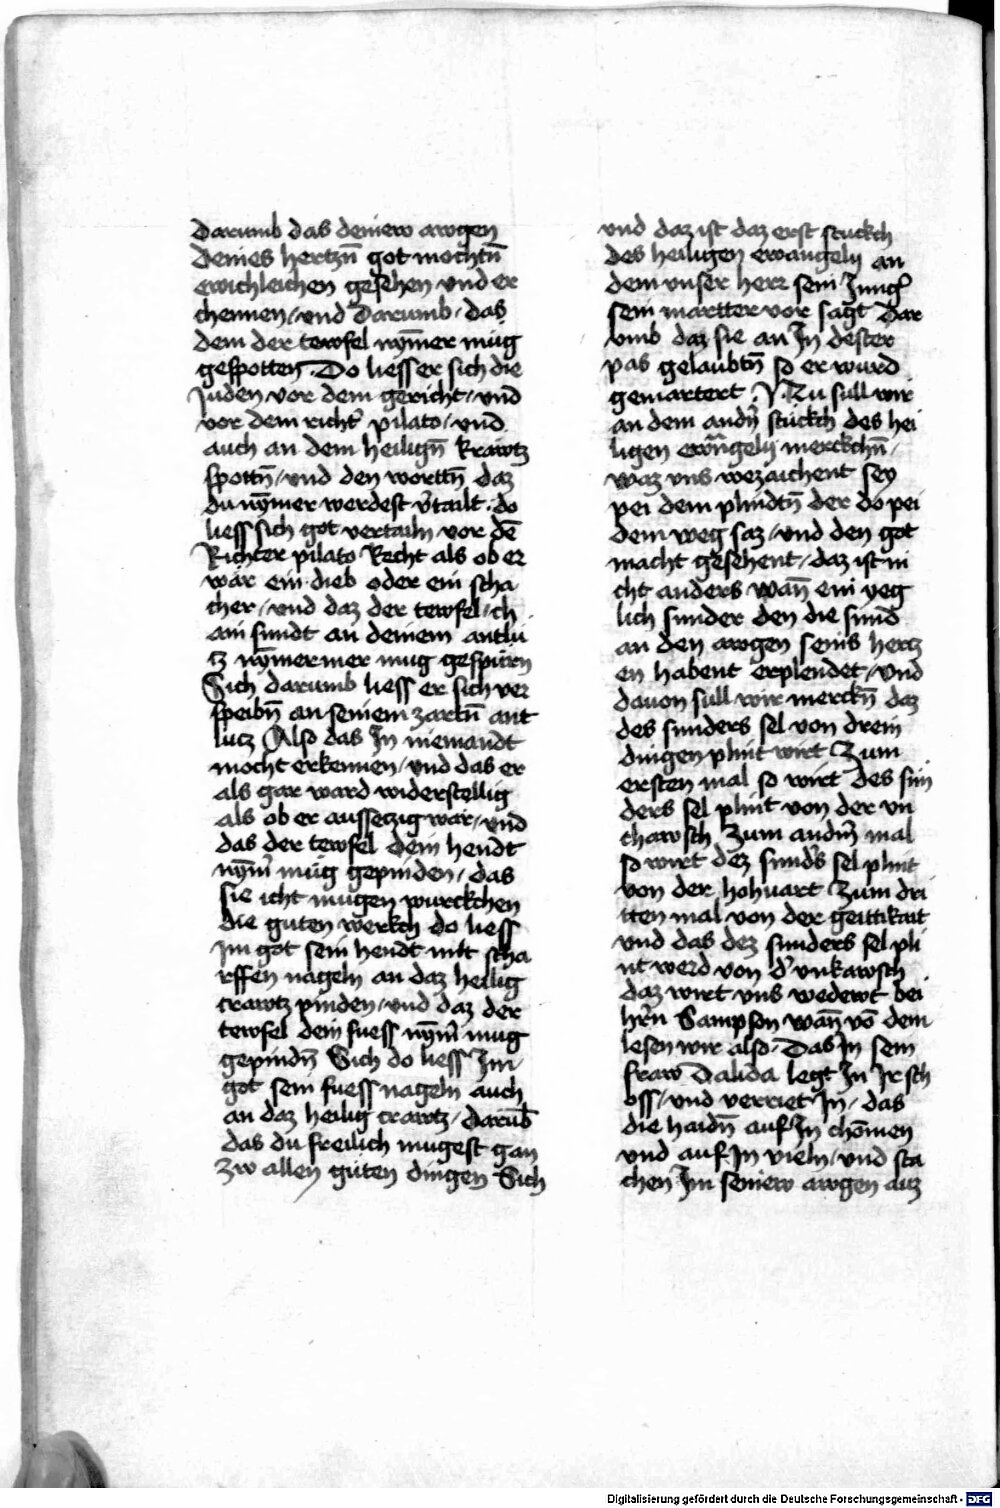 darumb das deniew awgen
denies hertzn̄ got mochtn̄
ewichleichen gesehen vnd er
chennen / vnd Darumb / das
dem der tewfel nȳmer müg
gespotten Do liess er sich die
Juden vor dem gericht / vnd
vor dem richt' pilato / vnd
auch an dem heilign̄ krawtz
spottn̄ / vnd den worttn̄ daz
du nȳmer werdest v'tailt · do
liess sich got vertailn vor dē
Richter pilato Recht als ob er
wär ein dieb oder ein scha
cher / vnd daz der tewfel / ch
ain sundt an deinem antlu
tz nȳmermer mug gespürn
Sich darumb liess er sich ver
speibn̄ an seniem zartn̄ ant
lutz Also das In niemandt
mocht erkennen / vnd das er
als gar ward widerstellig
als ob er aussetzig war / vnd
das der tewfel dein hendt
nȳm' müg gepinden / das
sie icht mugen wurckchen
die guten werkch do liess
Im got sein hendt mit scha
rffen nageln an daz heilig
crawtz pinden / vnd daz der
tewfel dein fuess nȳm' mug
gepindn̄ Sich do liess Im
got sein fuess nageln auch
an daz heilig crawtz / darūb
das du freilich mugest gan
zw allen guten dingen Sich
vnd daz ist daz erst stuckch
des heiligen ewangelij an
dem vnser herr sein Jung'
sein martter vor sagt Dar
vmb daz sie an In dester
pas gelaubtn̄ so er wurd
gemartert Nu sull wir
an dem andn̄ stückch des hei
ligen ewāngelij merckchn̄ /
waz vns wezaichent sey
pei dem plindtn̄ der do pei
dem weg saz / vnd den got
macht gesehent / daz ist ni
cht anders wan̄ ein yeg
lich sunder den die sund
an den awgen senis hertz
en habent erplendet / vnd
dauon sull wir merckn̄ daz
des sunders sel von drein
dingen plint wirt Zum
ersten mal so wirt des sün
ders sel plint von der vn
chawsch Zum andn̄ mal
so wirt dez sund's sel plint
von der hohuart Zum dri
tten mal von der geittikait
vnd das dez sunders sel pli
nt werd von d' vnkawsch
daz wirt vns wedewt bei
hr̄n Sampson wan̄ vō dem
lesen wir also · Das In sein
fraw Dalida legt In Ir sch
oss / vnd verriet In / das
die haidn̄ auf In chōmen
vnd auf In vieln / vnd sta
chen Im seniew awgen auz
Digitalisierung gefördert durch die Deutsche Forschungsgemeinschaft - DFG